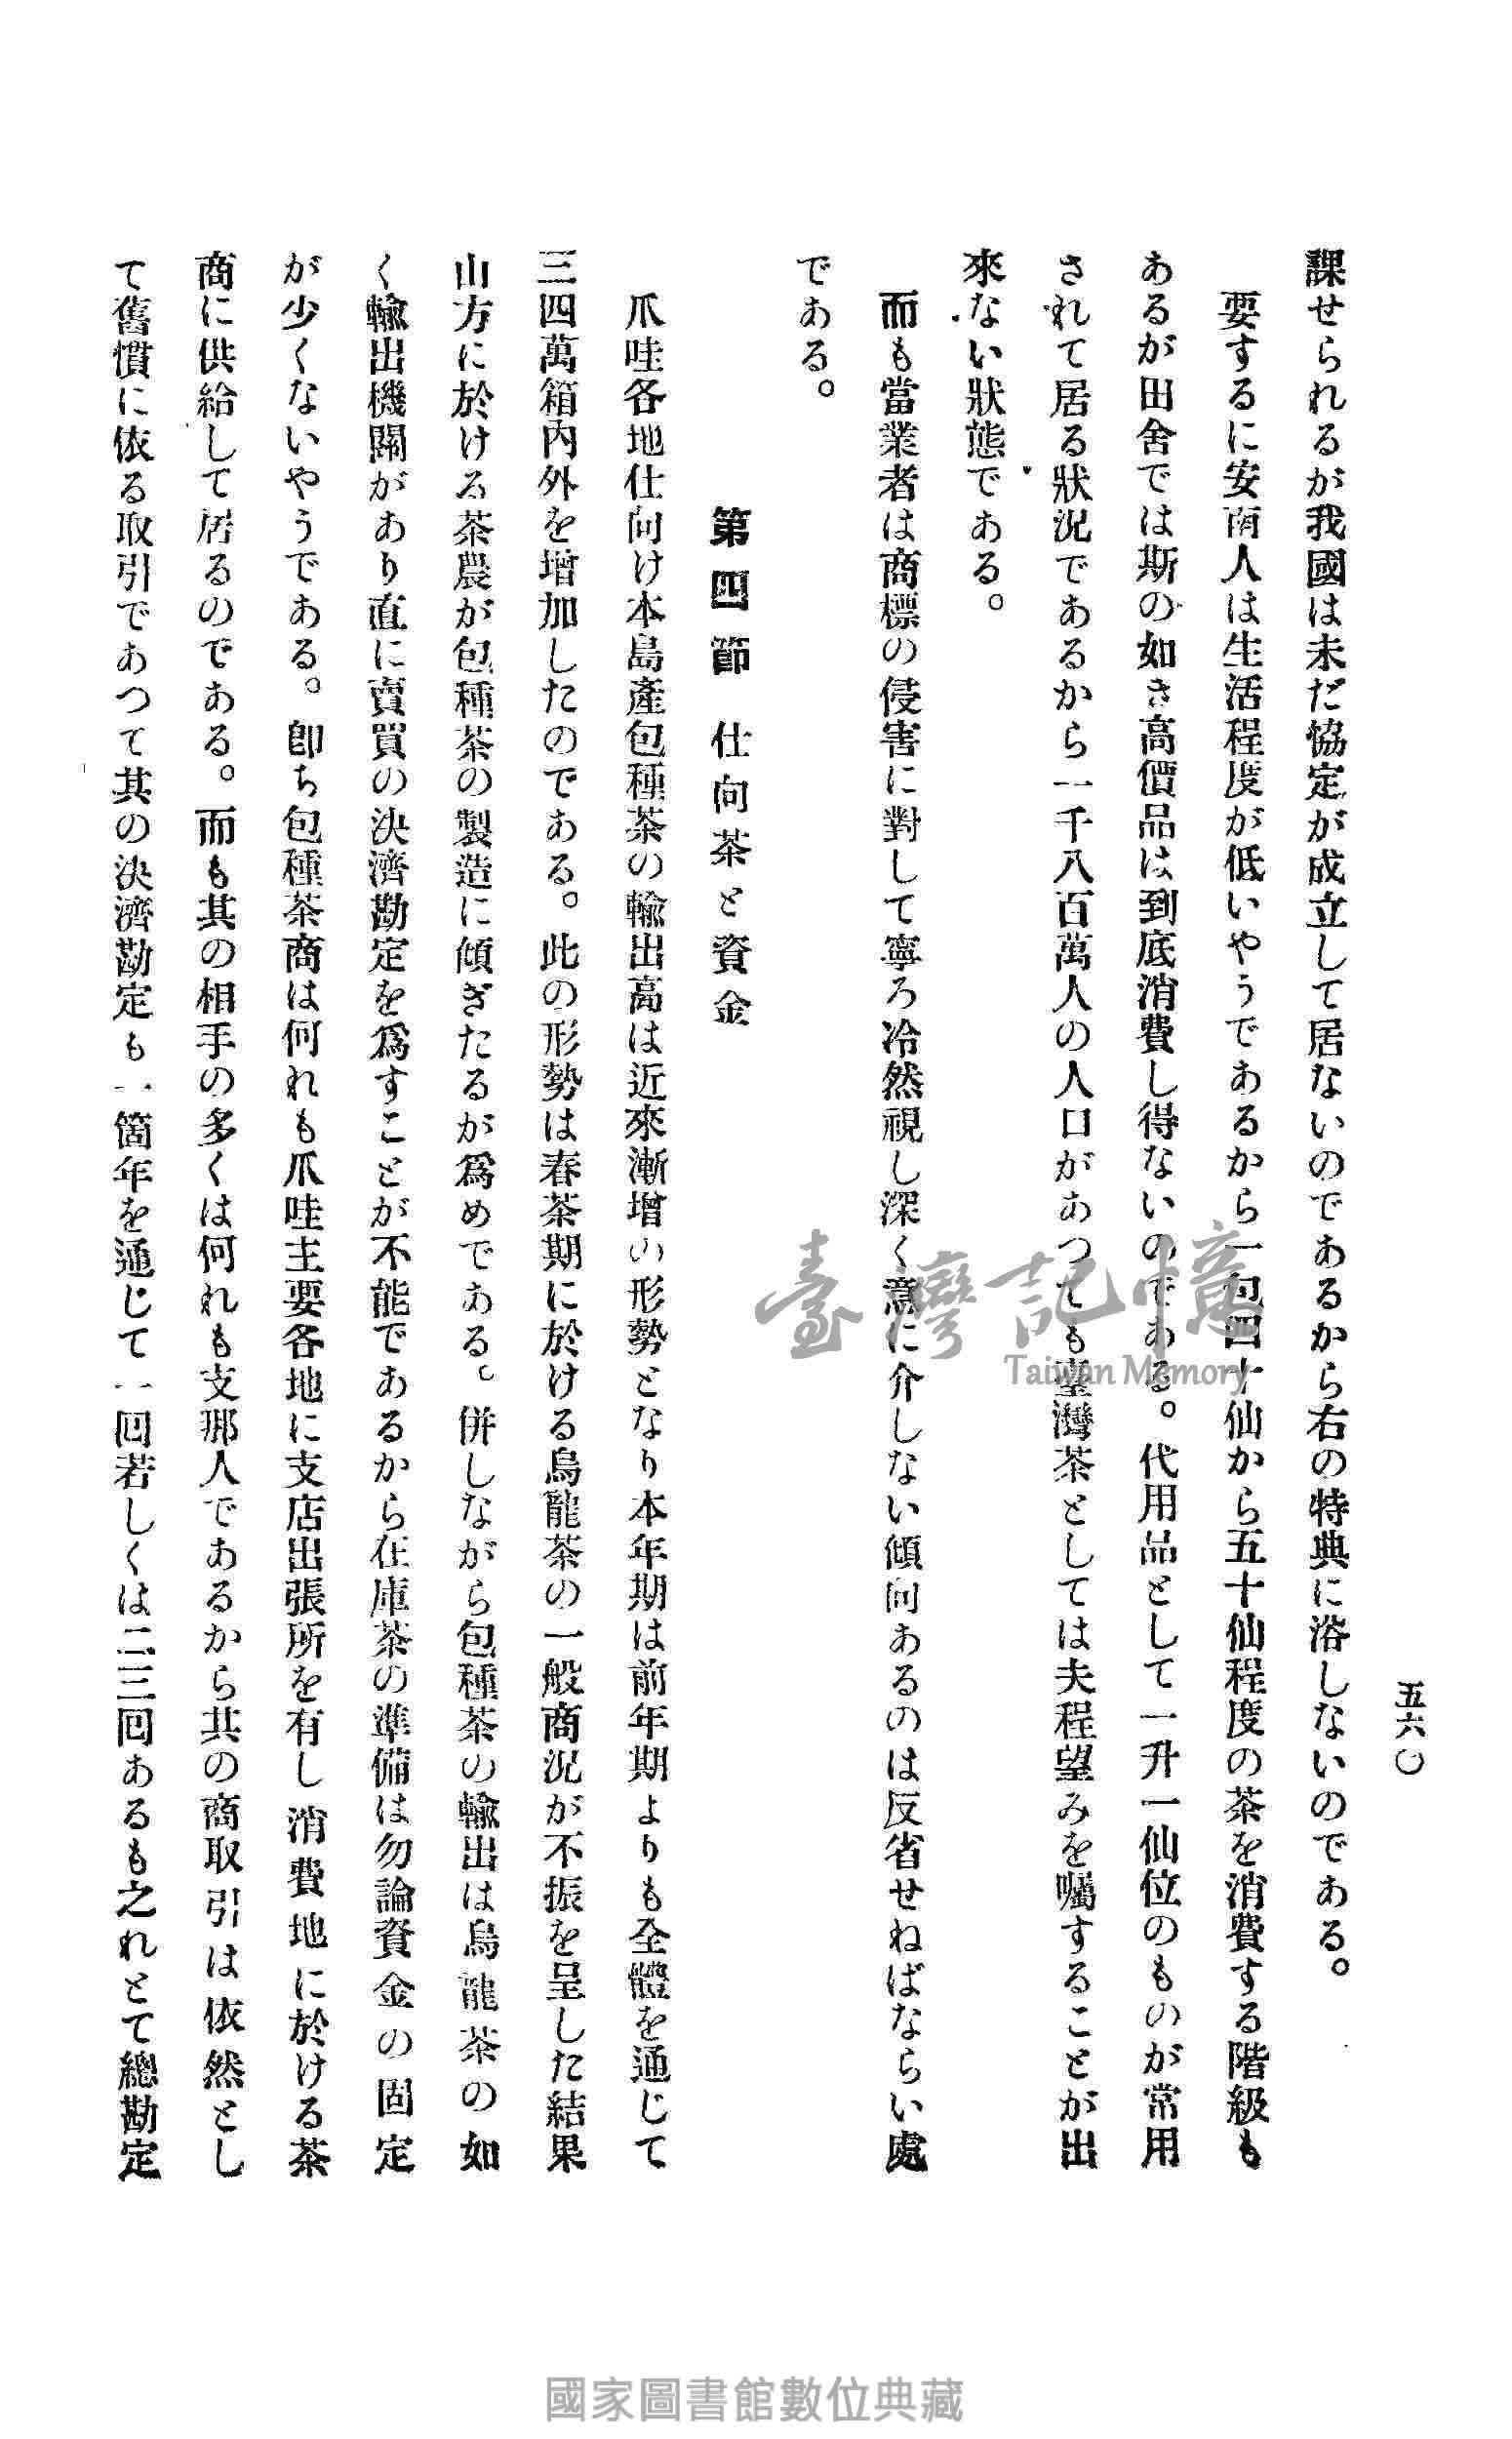 五六〇
課せられるが我國は未だ協定が成立して居ないのであるから右の特典に浴しないのである。
要するに安南人は生活程度が低いやうであるから一包四十仙から五十仙程度の茶を消費する階級も
あるが田舍では斯の如き高價品は到底消費し得ないのである。代用品として一升一仙位のものが常用
されて居る狀況であるから一千八百萬人の人口があつても臺灣茶としては夫程望みを囑することが出
來ない狀態である。
而も當業者は商標の侵害に對して寧ろ冷然視し深く意に介しない傾向あるのは反省せねばならい處
である。
第四節 仕向茶と資金
爪哇各地仕向け本島產包種茶の輸出高は近來漸增の形勢となり本年期は前年期よりも全體を通じて
三四萬箱內外を增加したのである。此の形勢は春茶期に於ける烏龍茶の一般商況が不振を呈した結果
山方に於ける茶農が包種茶の製造に傾ぎたるが爲めである。併しながら包種茶の輸出は烏龍茶の如
く輸出機關があり直に賣買の決濟勘定を爲すことが不能であるから在庫茶の準備は勿論資金の固定
が少くないやうである。卽ち包種茶商は何れも爪哇主要各地に支店出張所を有し消費地に於ける茶
商に供給して居るのである。而も其の相手の多くは何れも支那人であるから其の商取引は依然とし
て舊慣に依る取引であつて其の決濟勘定も一箇年を通じて一回若しくは二三回あるも之れとて總勘定
臺灣記憶
Taiwan Memory
國家圖書館數位典藏